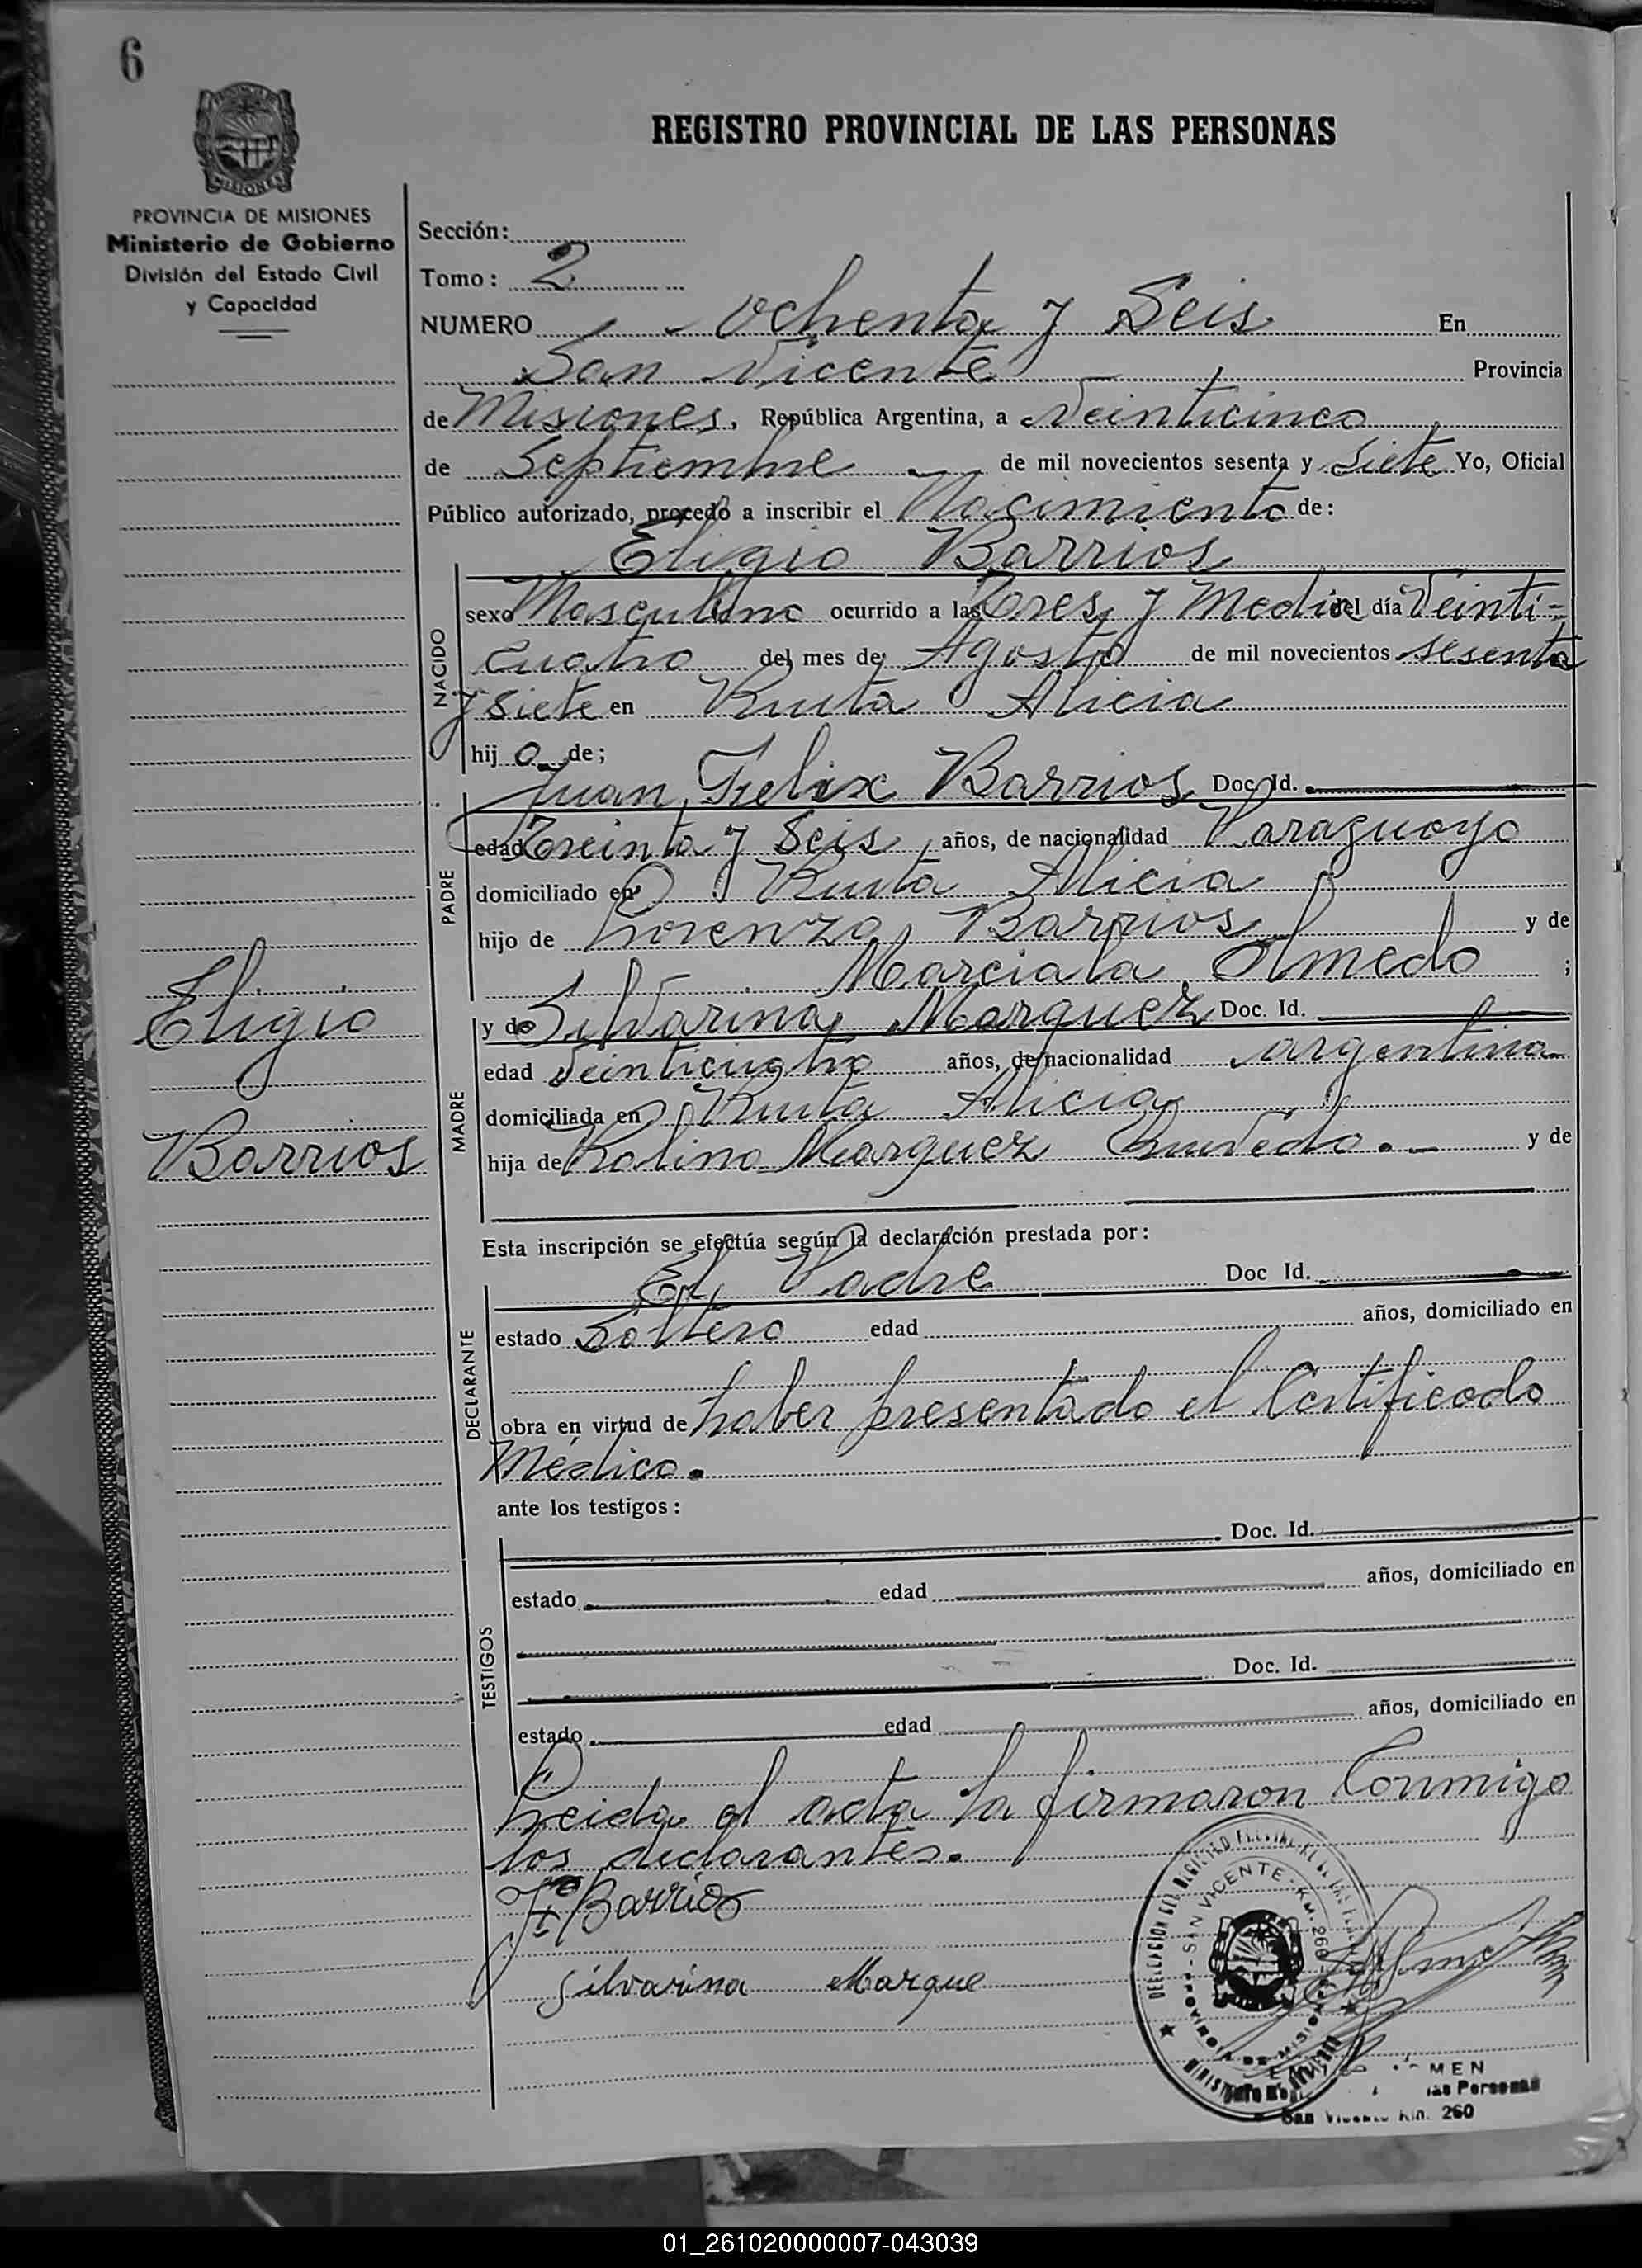 6
REGISTRO PROVINCIAL DE LAS PERSONAS
MISIONES
PROVINCIA DE MISIONES
Ministerio de Gobierno
División del Estado Civil
y Capacidad
Sección:
Tomo: 2
NUMERO Ochenta y Seis En
San Vicente Provincia
de Misiones, República Argentina, a Veinticinco
de Septiembre de mil novecientos sesenta y Siete Yo, Oficial
Público autorizado, procedo a inscribir el Nacimiento de:
Eligio Barrios
NACIDO
sexo Masculino ocurrido a las Tres y Media del día Veinti-
cuatro del mes de Agosto de mil novecientos sesenta
y siete en Ruta Alicia
hij o de;
Juan Felix Barrios Doc. Id.
PADRE
edad Treinta y Seis años, de nacionalidad Paraguayo
domiciliado en Ruta Alicia
hijo de Lorenzo Barrios y de
Marciala Olmedo ;
y de Silvarina Marquez Doc. Id.
MADRE
edad Veinticuatro años, de nacionalidad argentina
domiciliada en Ruta Alicia
hija de Rolino Marquez y de
Eligio
Barrios
Esta inscripción se efectúa según la declaración prestada por:
El Padre Doc Id.
DECLARANTE
estado Soltero edad años, domiciliado en
obra en virtud de haber presentado el Certificado
Médico.
ante los testigos:
Doc. Id.
TESTIGOS
estado edad años, domiciliado en
Doc. Id.
estado edad años, domiciliado en
Leida el acta la firmaron Conmigo
los declarantes.
Barrios
Silvarina Marque
SAN VICENTE - KM. 260
PROVINCIA DE MISIONES
MEN
las Personas
San Vicente Km. 260
01_261020000007-043039